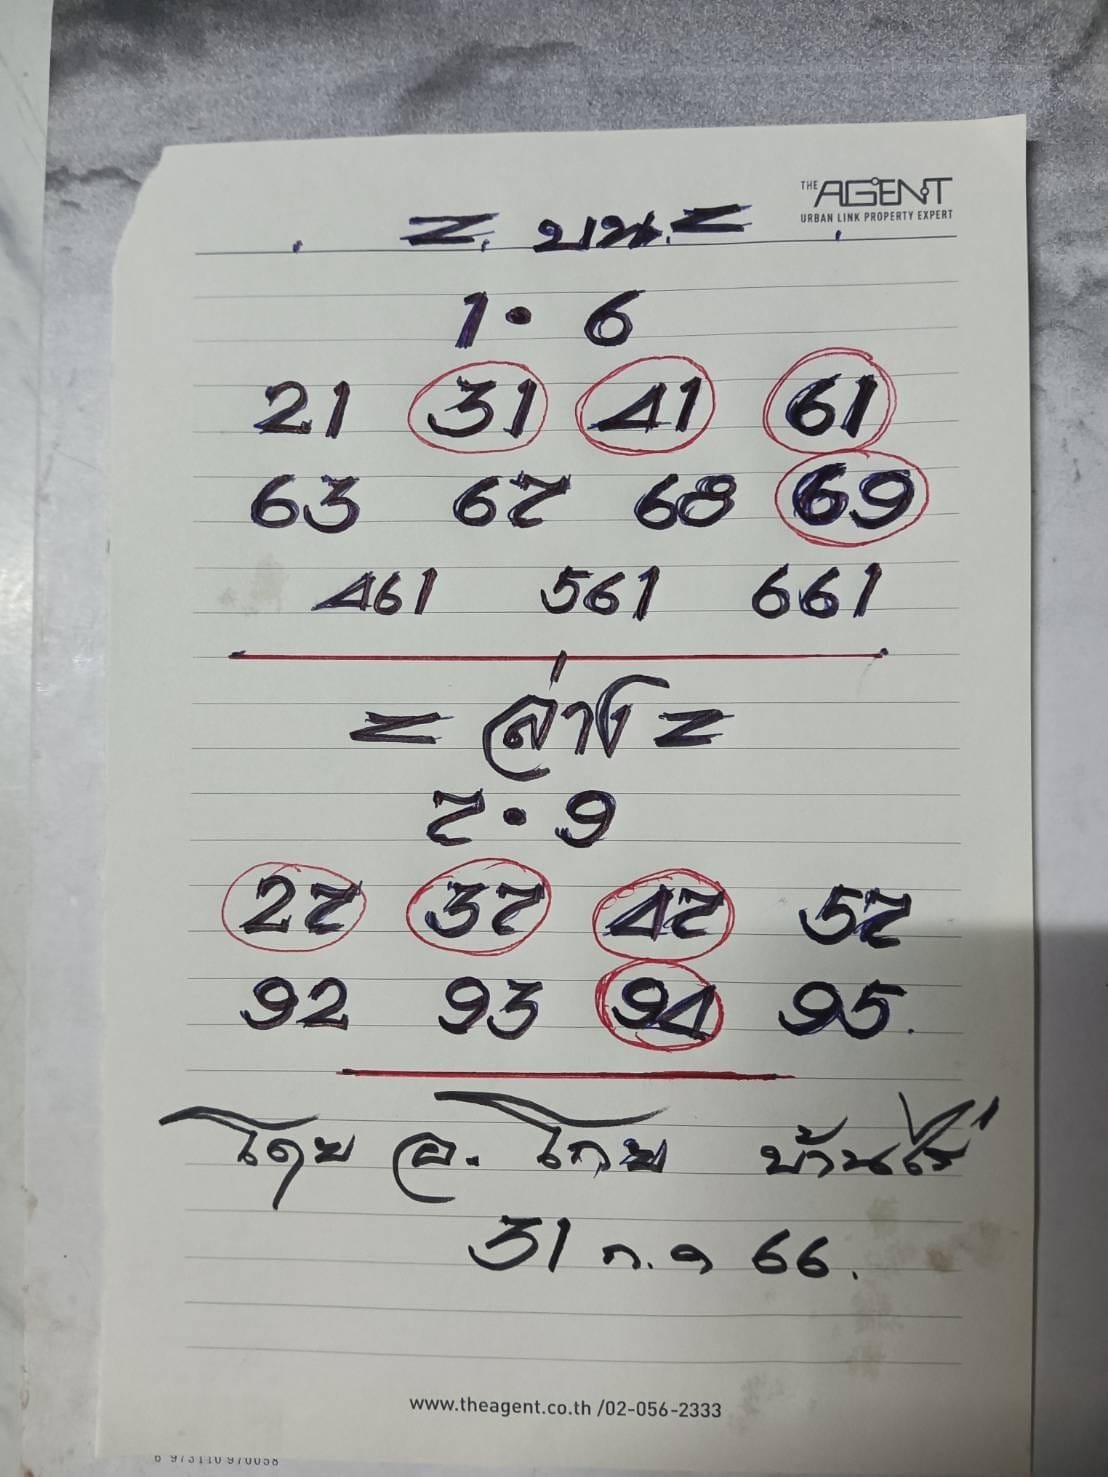 THE AGENT
URBAN LINK PROPERTY EXPERT
= บน =
1 • 6
21 31 41 61
63 67 68 69
461 561 661
= ล่าง =
7 • 9
27 37 47 57
92 93 94 95.
โดย อ. โกย บ้านไร่
31 ก.ค 66.
www.theagent.co.th /02-056-2333